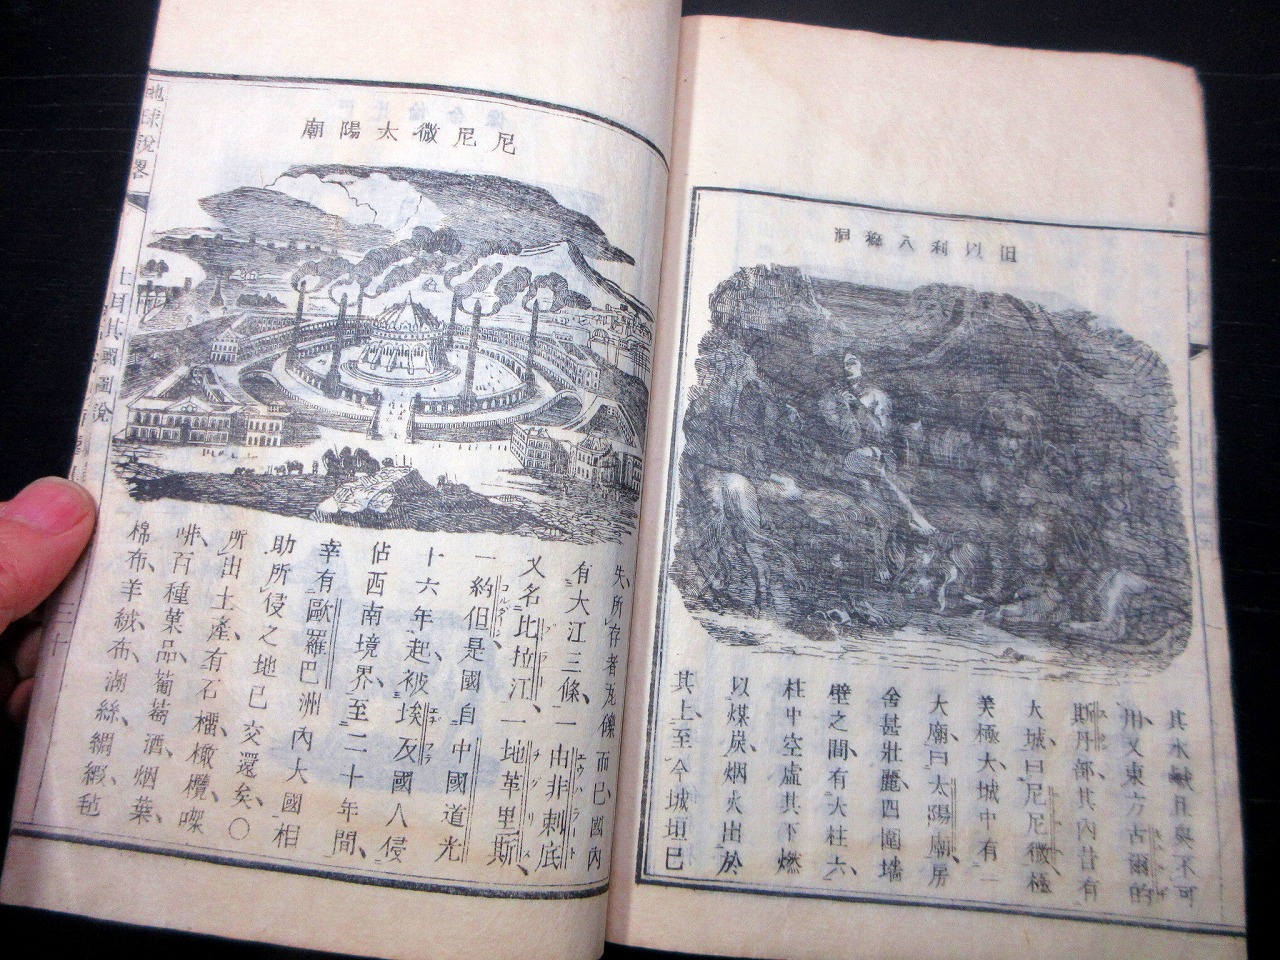 但以利入獅洞
其水鹹且臭不可
用又東方古爾的
斯丹部其內昔有
大城曰尼尼微極
美極大城中有一
大廟曰太陽廟房
舍甚壯麗四圍墻
壁之間有大柱六
柱中空虛其下燃
以煤炭烟火出於
其上至今城垣已
尼尼微太陽廟
失所存者瓦礫而已國內
有大江三條一由非剌底
又名比拉江一地革里斯
一約但是國自中國道光
十六年起被埃及國人侵
佔西南境界至二十年間
幸有歐羅巴洲內大國相
助所侵之地已交還矣〇
所出土產有石橊橄欖㗎
啡百種菓品葡萄酒烟葉
棉布羊絨布湖絲綢緞毡
地球說畧
土耳其國圖說
三十